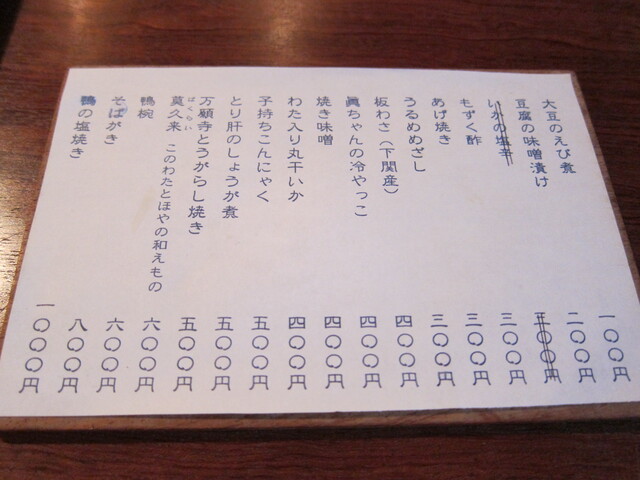 大豆のえび煮 一〇〇円
豆腐の味噌漬け 二〇〇円
いかの塩辛 三〇〇円
もずく酢 三〇〇円
あげ焼き 三〇〇円
うるめめざし 三〇〇円
板わさ(下関産) 四〇〇円
眞ちゃんの冷やっこ 四〇〇円
焼き味噌 四〇〇円
わた入り丸干いか 四〇〇円
子持ちこんにゃく 五〇〇円
とり肝のしょうが煮 五〇〇円
万願寺とうがらし焼き 五〇〇円
ばくらい
莫久来 このわたとほやの和えもの 六〇〇円
鴨椀 六〇〇円
そばがき 八〇〇円
鴨の塩焼き 一〇〇〇円